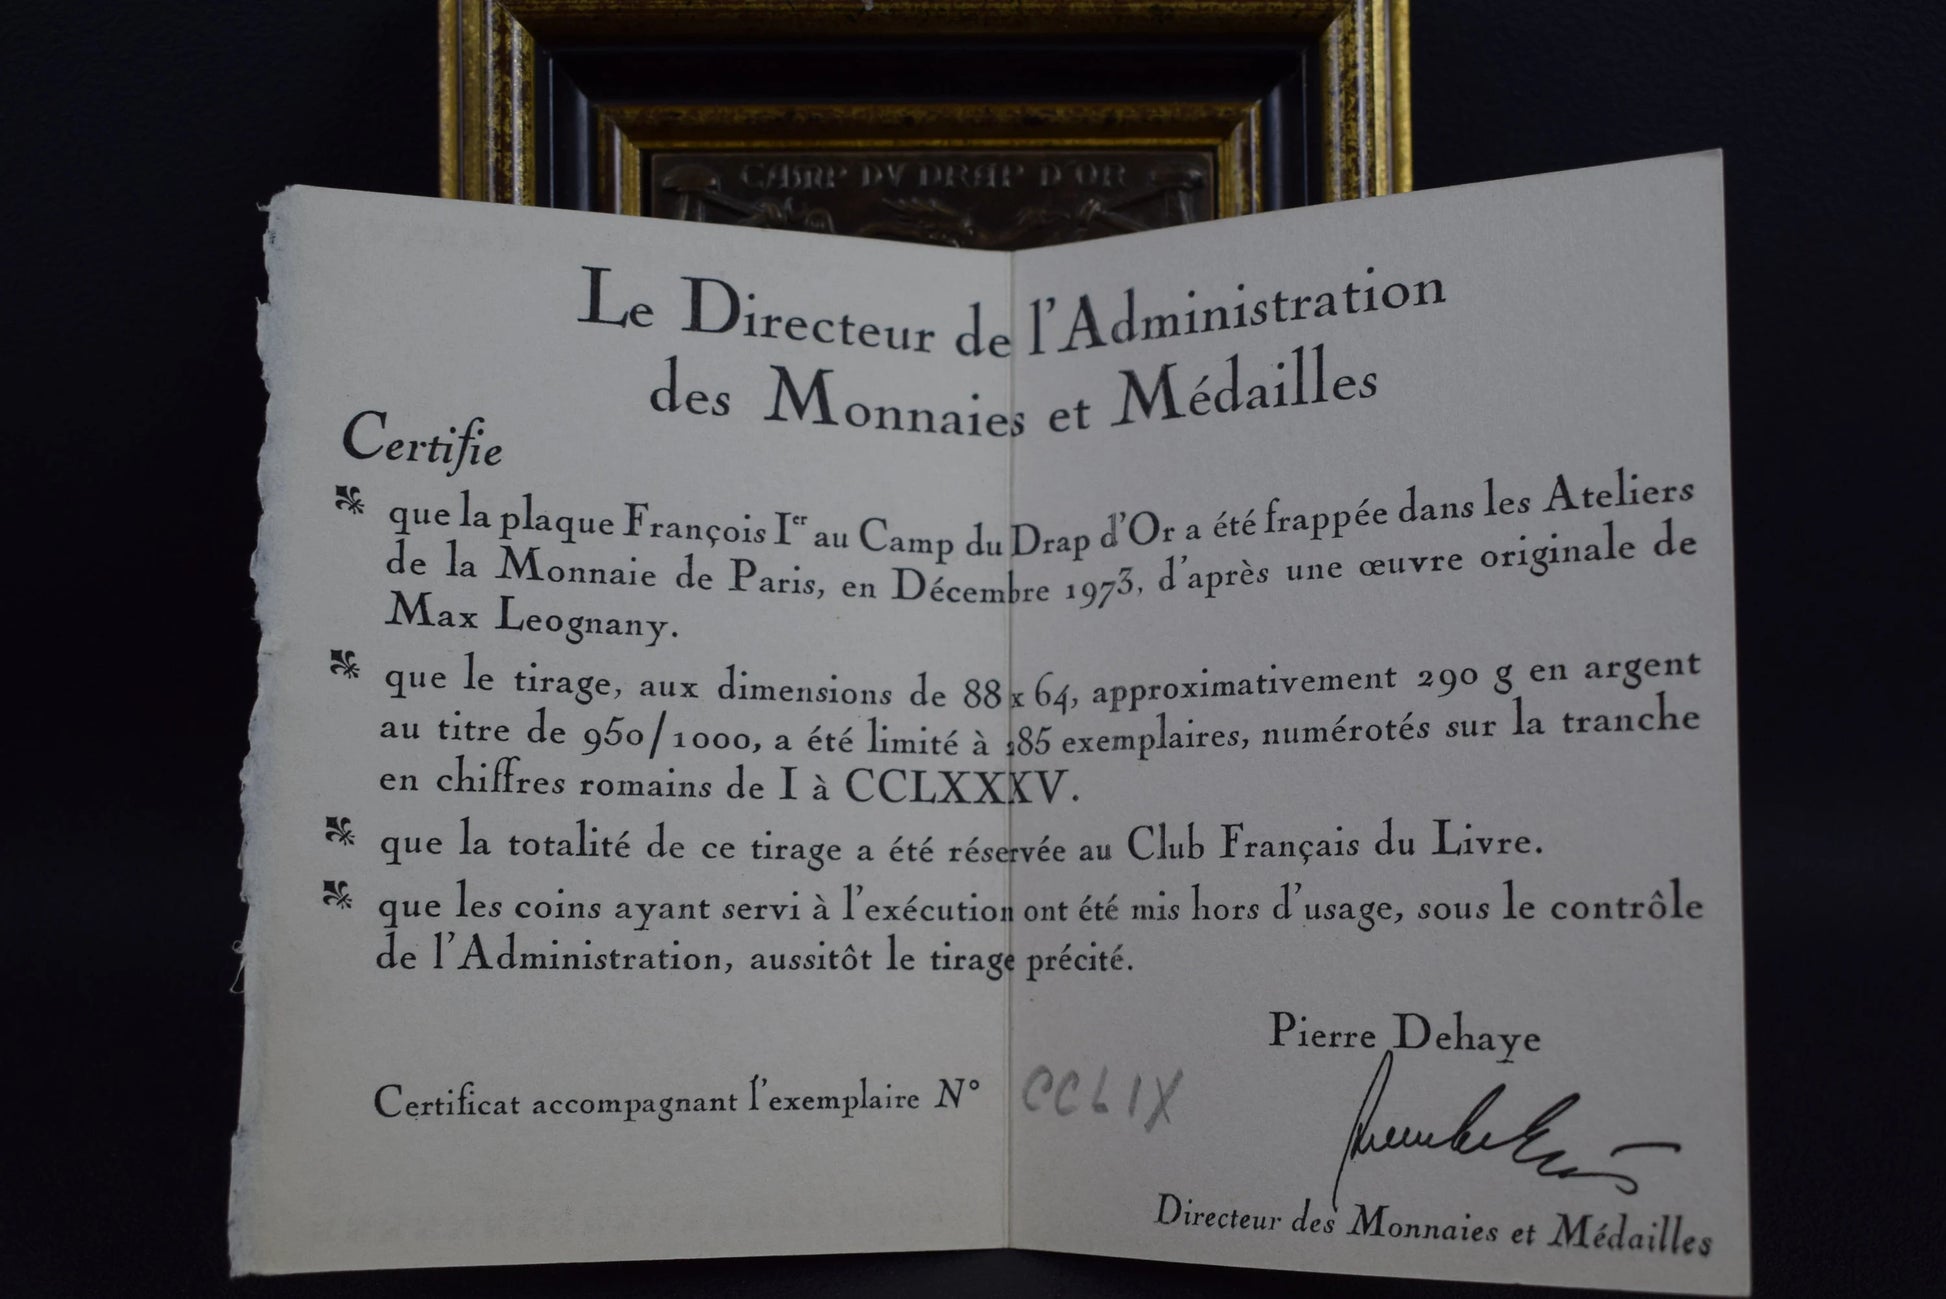 CAMP DV DRAP D'OR
Le Directeur de l'Administration
des Monnaies et Médailles
Certifie
que la plaque François Ier au Camp du Drap d'Or a été frappée dans les Ateliers
de la Monnaie de Paris, en Décembre 1973, d'après une œuvre originale de
Max Leognany.
que le tirage, aux dimensions de 88 x 64, approximativement 290 g en argent
au titre de 950/1000, a été limité à 285 exemplaires, numérotés sur la tranche
en chiffres romains de I à CCLXXXV.
que la totalité de ce tirage a été réservée au Club Français du Livre.
que les coins ayant servi à l'exécution ont été mis hors d'usage, sous le contrôle
de l'Administration, aussitôt le tirage précité.
Pierre Dehaye
Certificat accompagnant l'exemplaire N° CCLIX
Directeur des Monnaies et Médailles